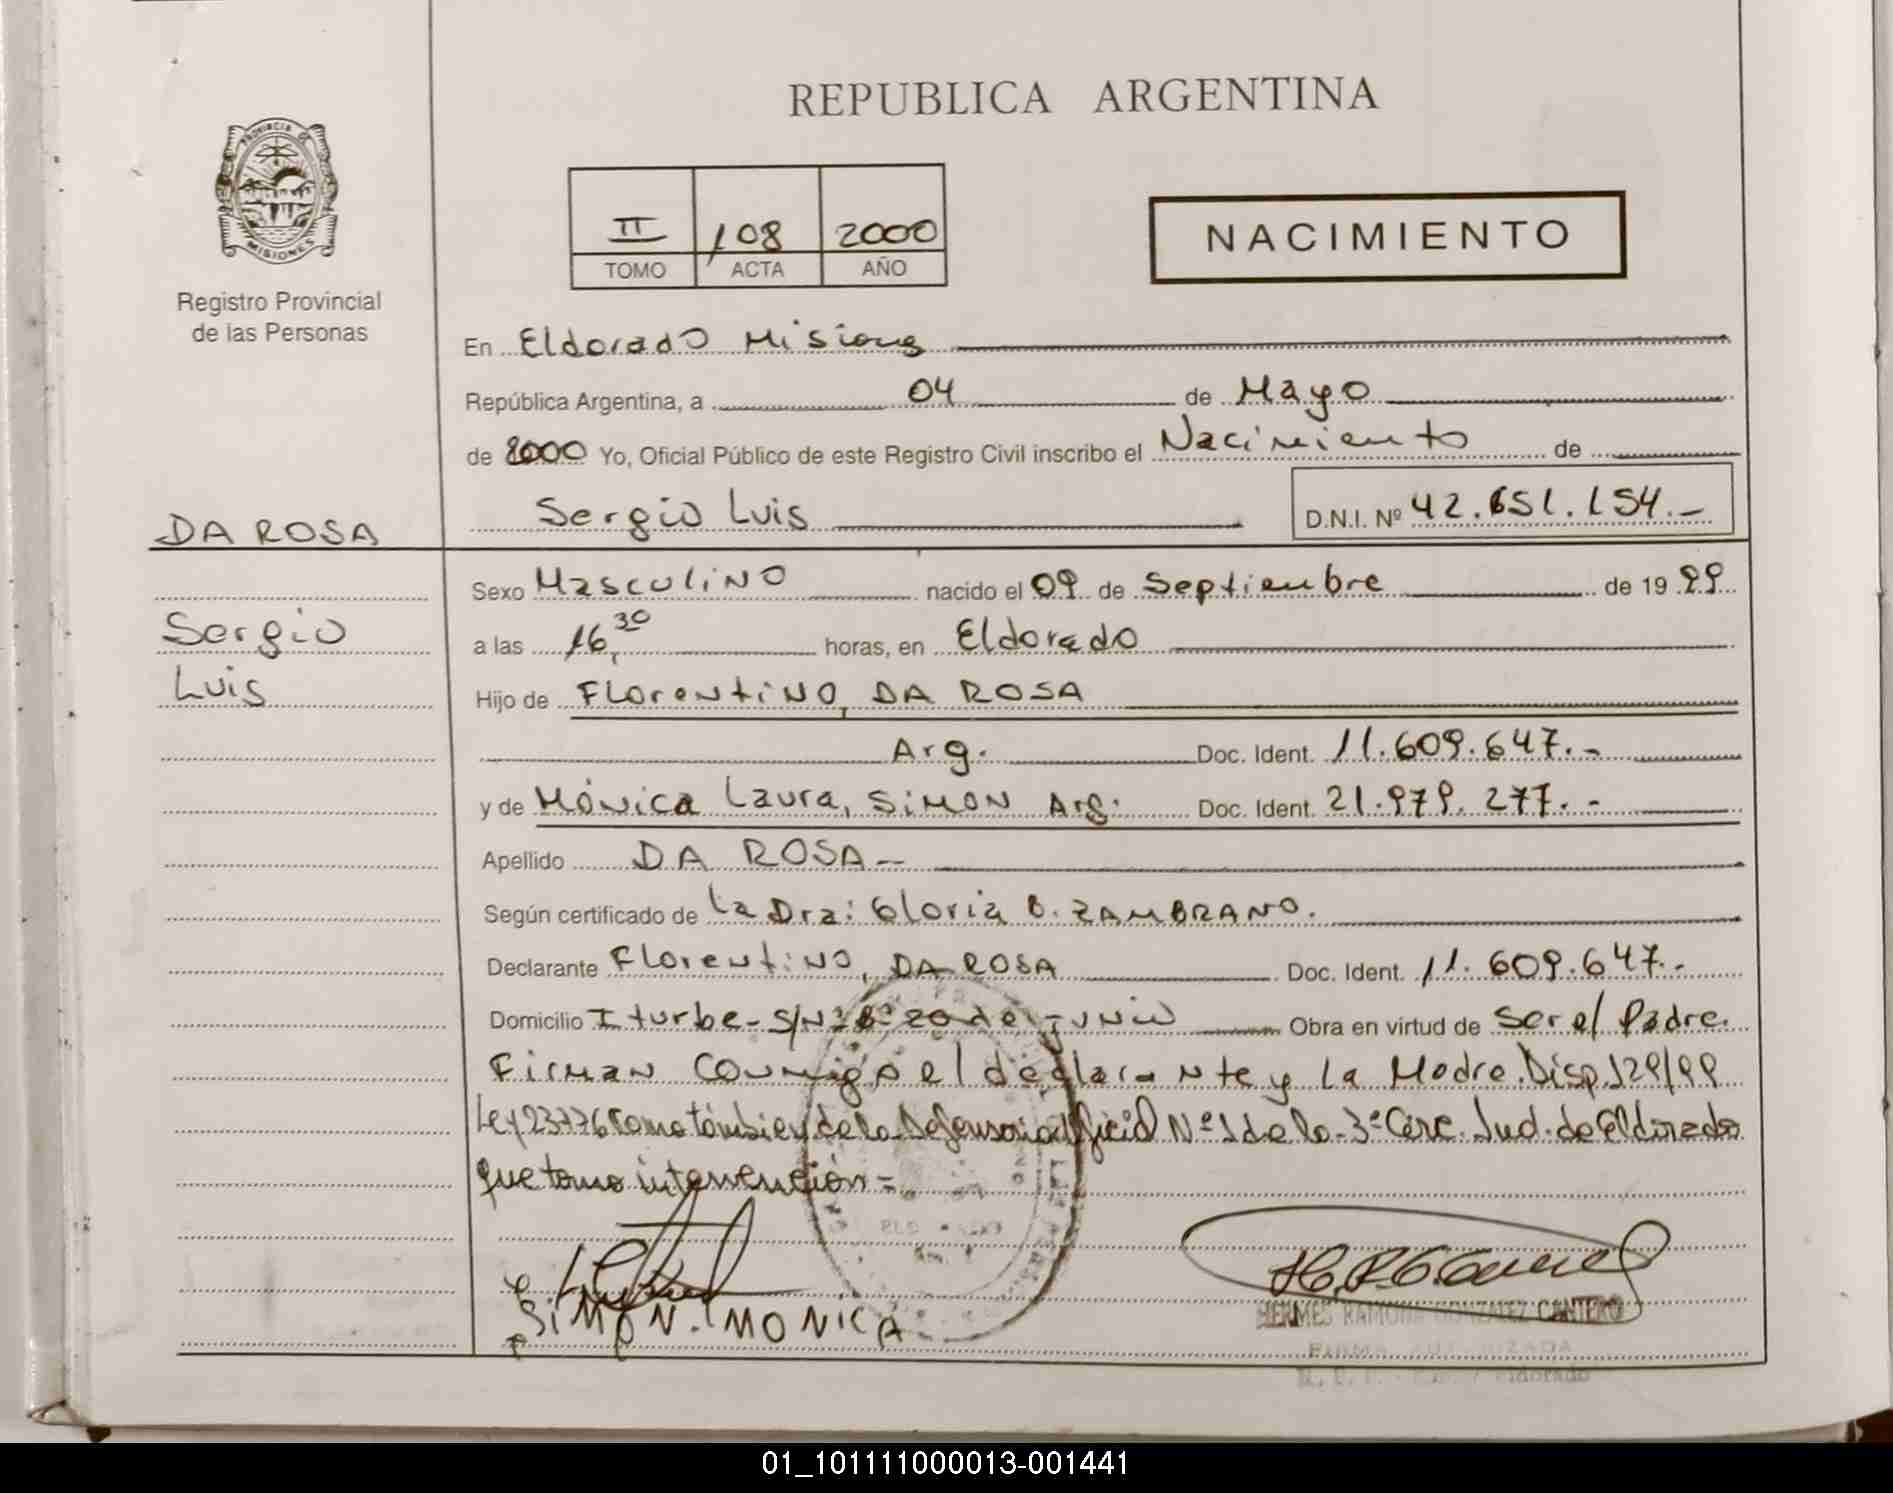 REPUBLICA ARGENTINA
PROVINCIA DE
MISIONES
Registro Provincial
de las Personas
II 108 2000
TOMO ACTA AÑO
NACIMIENTO
En Eldorado Misiones
República Argentina, a 04 de Mayo
de 2000 Yo, Oficial Público de este Registro Civil inscribo el Nacimiento de
DA ROSA
Sergio Luis D.N.I. Nº 42.651.154.-
Sexo Masculino nacido el 09 de Septiembre de 1999
Sergio
a las 16,30 horas, en Eldorado
Luis
Hijo de Florentino, DA ROSA
Arg. Doc. Ident. 11.609.647.-
y de Mónica Laura, SIMON Arg. Doc. Ident. 21.979.277.-
Apellido DA ROSA--
Según certificado de La Dra: Gloria B. ZAMBRANO.
Declarante Florentino, DA ROSA Doc. Ident. 11.609.647.-
Domicilio Iturbe- S/Nº Bº 20 de Junio Obra en virtud de Ser el Padre.
Firman Conmigo el declarante y La Madre. Disp. 129/99
Ley 23776 Como también de la Defensoria Oficial Nº 1 de la 3ª Circ. Jud. de Eldorado
que tomo intervención=
SIMON. MONICA
HERMES RAMONA GONZALEZ CANTERO
FIRMA AUTORIZADA
Eldorado
01_101111000013-001441